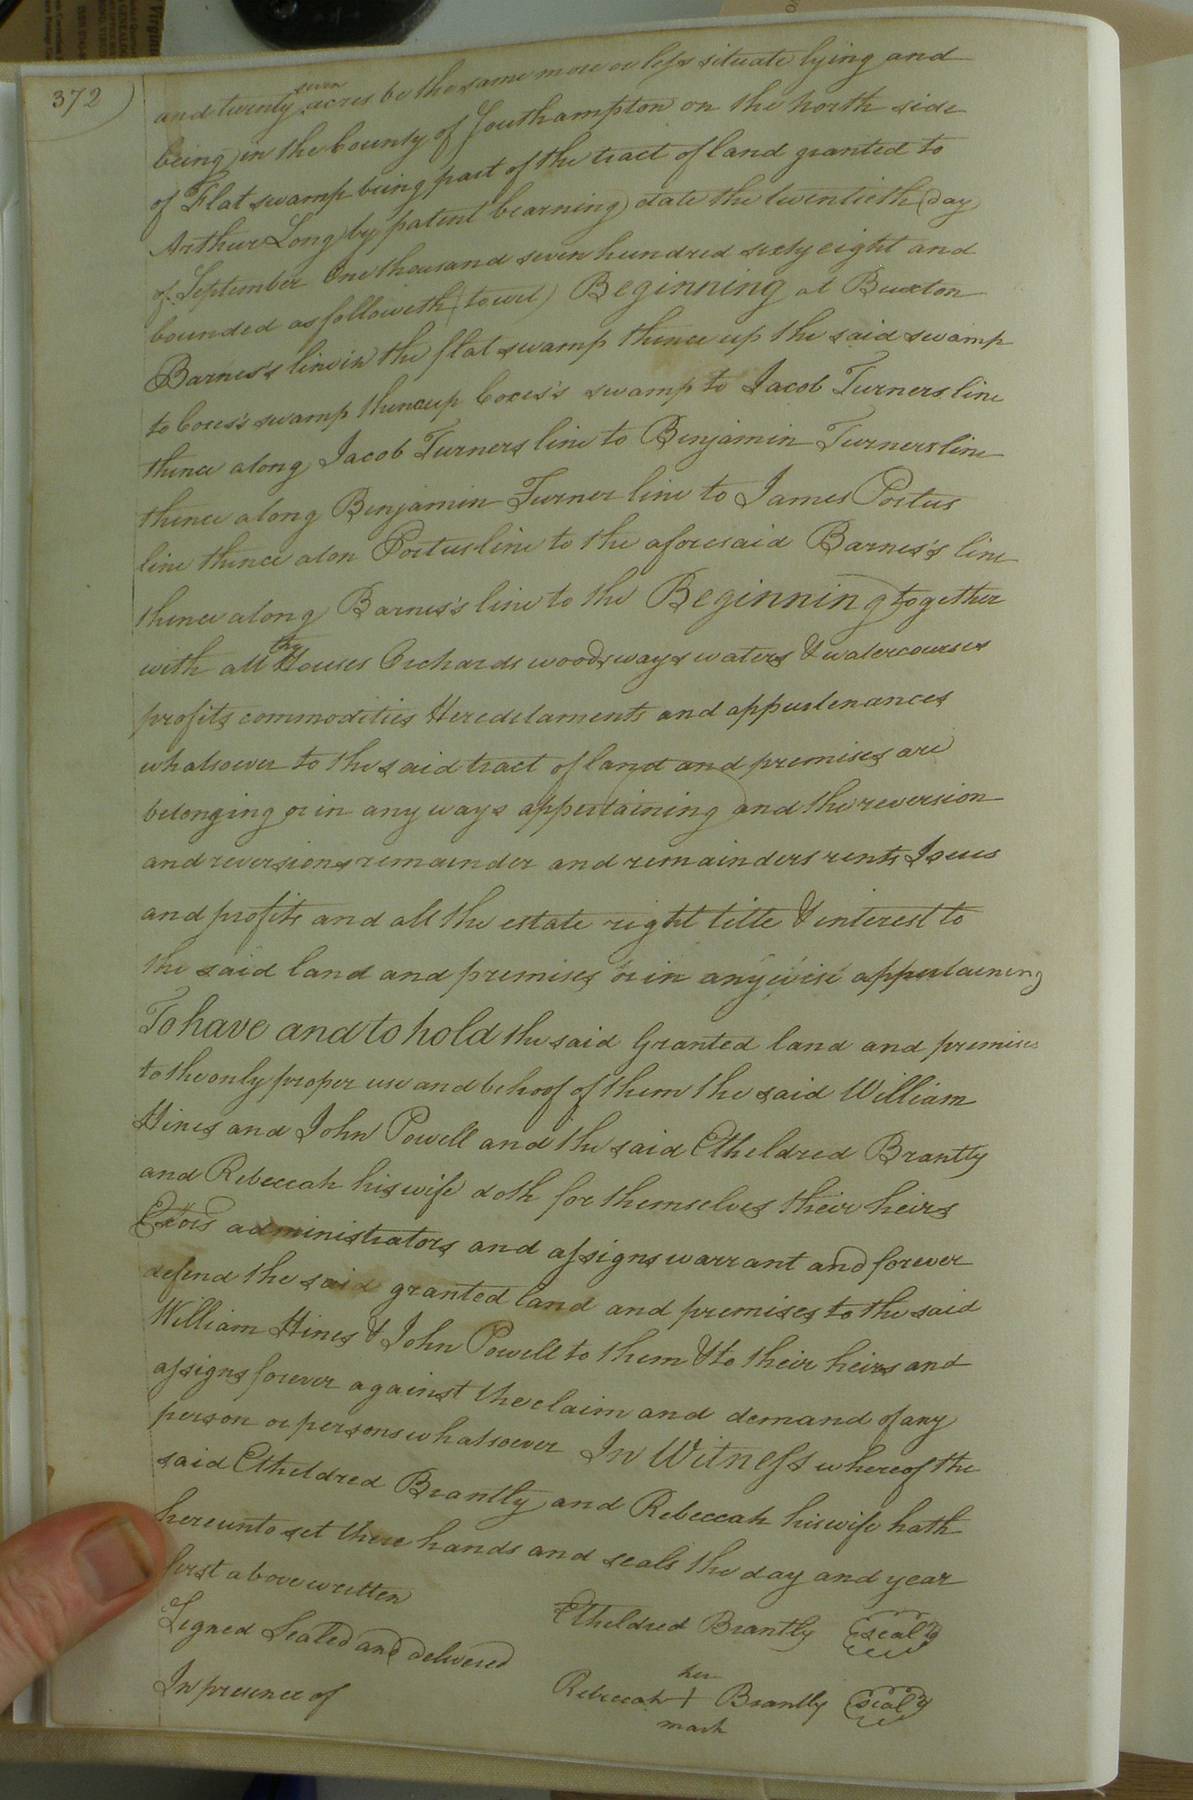 372
and twenty seven acres be the same more or less situate lying and
being in the County of Southampton on the north side
of Flat swamp being part of the tract of land granted to
Arthur Long by patent bearning date the twentieth day
of September One thousand seven hundred sixty eight and
bounded as followeth (towit) Beginning at Buxton
Barnes's line in the flat swamp thence up the said swamp
to Coxes's swamp thence up Coxes's swamp to Jacob Turners line
thence along Jacob Turners line to Benjamin Turners line
thence along Benjamin Turner line to James Portus
line thence alon Portus line to the aforesaid Barnes's line
thence along Barnes's line to the Beginning together
with all the Houses Orchards woods ways waters & watercourses
profits commodities Heredetaments and appurtenances
whatsoever to the said tract of land and premises are
belonging or in any ways appertaining and the reversion
and reversions remainder and remainders rents Issues
and profits and all the estate right title & interest to
the said land and premises or in anywise appertaining
To have and to hold the said Granted land and premises
to the only proper use and behoof of them the said William
Hines and John Powell and the said Etheldred Brantly
and Rebeccah his wife doth for themselves their heirs
Exors administrators and assigns warrant and forever
defend the said granted land and premises to the said
William Hines & John Powell to them & to their heirs and
assigns forever against the claim and demand of any
person or persons whatsoever In Witness whereof the
said Etheldred Brantly and Rebeccah his wife hath
hereunto set there hands and seals the day and year
first above written
Signed Sealed and delivered
Etheldred Brantly seal
In presence of
Rebeccah her + mark Brantly seal